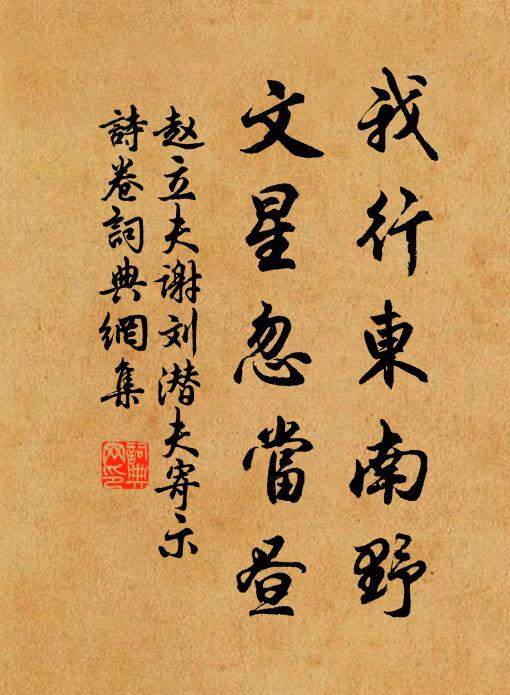 我行東南野
文星忽當昼
赵立夫谢刘潜夫寄示
詩卷詞典網集
詞典网印